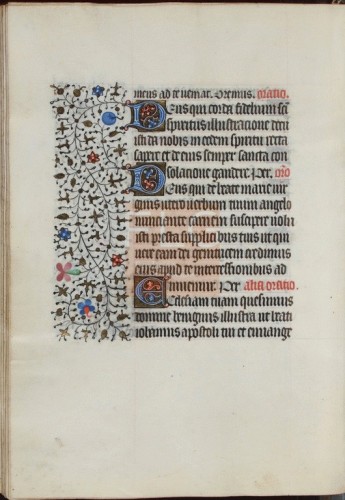 meus ad te veniat. Oremus. oratio.
Deus qui corda fidelium sci
spiritus illustracione docu
isti da nobis in eodem spiritu recta
sapere et de eius semper sancta con
solacione gaudere. Per. oro
Deus qui de beate marie vir
ginis utero verbum tuum angelo
nunciante carnem suscipere volu
isti presta supplicibus tuis ut qui
vere eam dei genitricem credimus
eius apud te intercessionibus ad
iuvemur. Per alia oratio.
Ecclesiam tuam quesumus
domine benignus illustra ut beati
iohannis apostoli tui et euvange